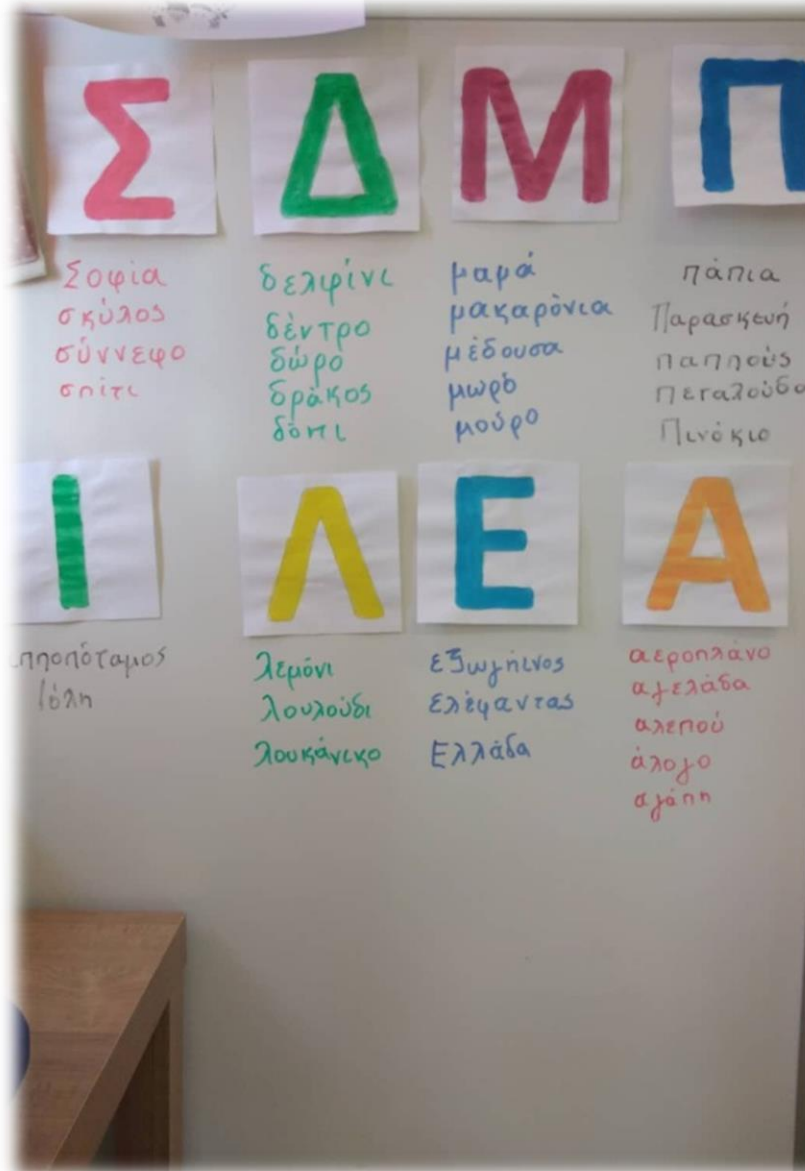 Σ Δ Μ Π
Σοφία
σκύλος
σύννεφο
σπίτι
δελφίνι
δέντρο
δώρο
δράκος
δόντι
μαμά
μακαρόνια
μέδουσα
μωρό
μούρο
πάπια
Παρασκευή
παππούς
πεταλούδα
Πινόκιο
Ι Λ Ε Α
ιπποπόταμος
Ιόλη
λεμόνι
λουλούδι
λουκάνικο
εξωγήινος
ελέφαντας
Ελλάδα
αεροπλάνο
αγελάδα
αλεπού
άλογο
αγάπη